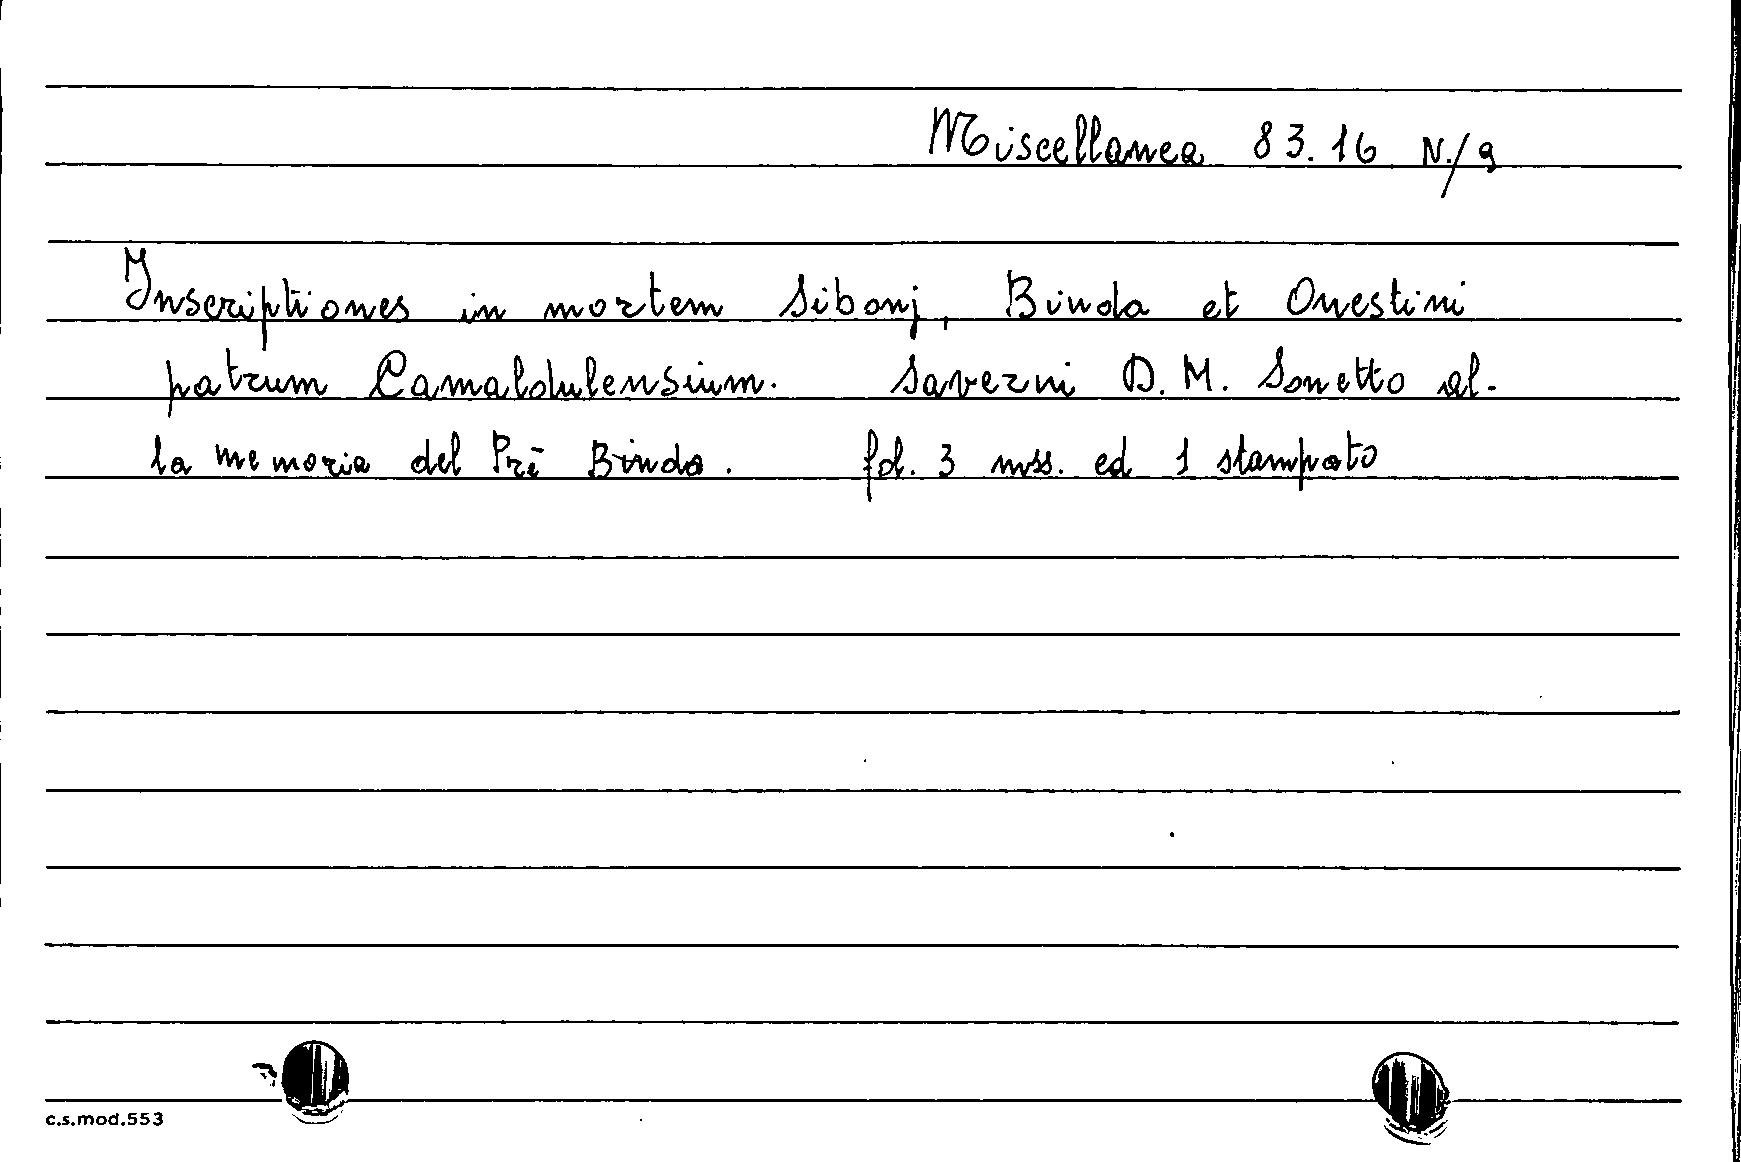 Miscellanea 83.16 N./9
Inscriptiones in mortem Sibonj, Binda et Onestini
patrum Camaldulensium. Saverni D. M. Sonetto al-
la memoria del Prē Binda. fol. 3 mss. ed 1 stampato
c.s.mod.553